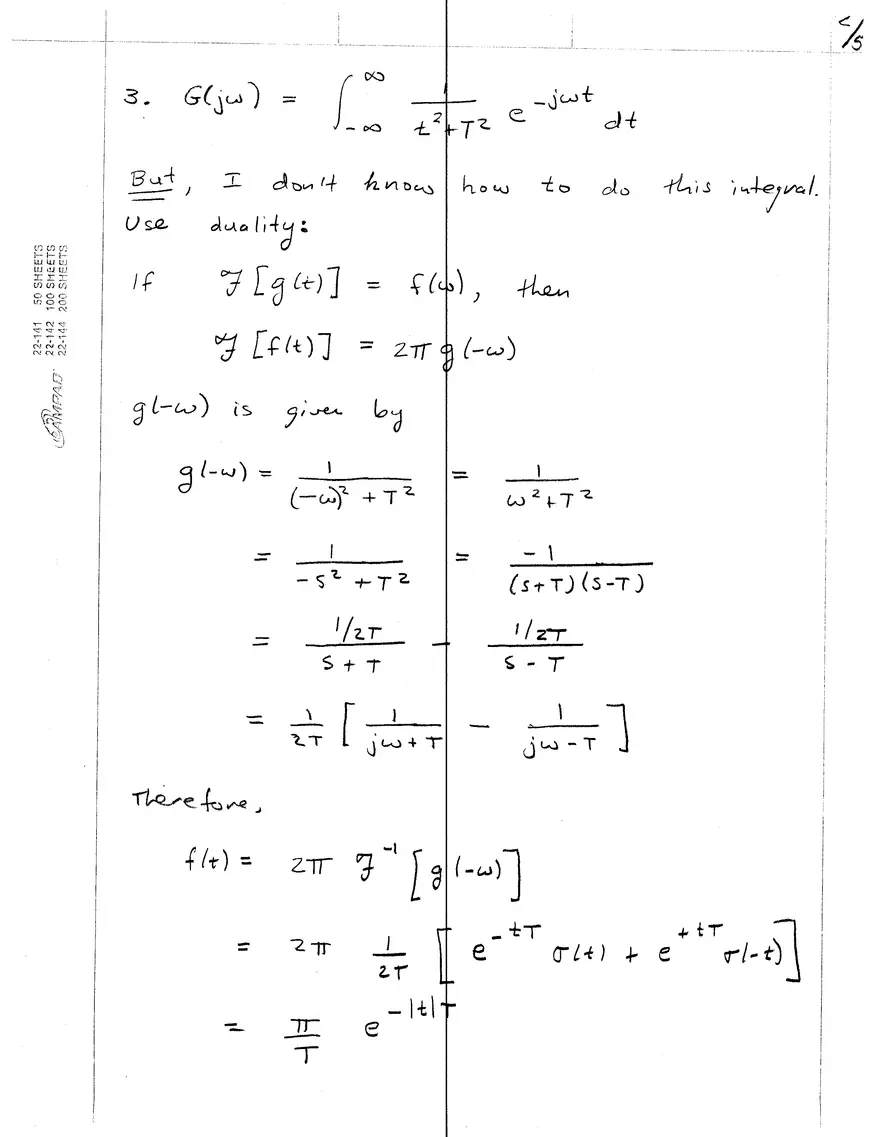 2/5
3. G(jω) = ∫_{-∞}^{∞} 1/(t²+T²) e^{-jωt} dt
But, I don't know how to do this integral.
Use duality:
If ℱ[g(t)] = f(ω), then
ℱ[f(t)] = 2π g(-ω)
g(-ω) is given by
g(-ω) = 1/((-ω)² + T²) = 1/(ω²+T²)
= 1/(-s² + T²) = -1/((s+T)(s-T))
= (1/2T)/(s + T) - (1/2T)/(s - T)
= 1/2T [ 1/(jω+T) - 1/(jω-T) ]
Therefore,
f(t) = 2π ℱ⁻¹[g(-ω)]
= 2π 1/2T [ e^{-tT} σ(t) + e^{+tT} σ(-t) ]
= π/T e^{-|t|T}
22-141 50 SHEETS
22-142 100 SHEETS
22-144 200 SHEETS
AMPAD